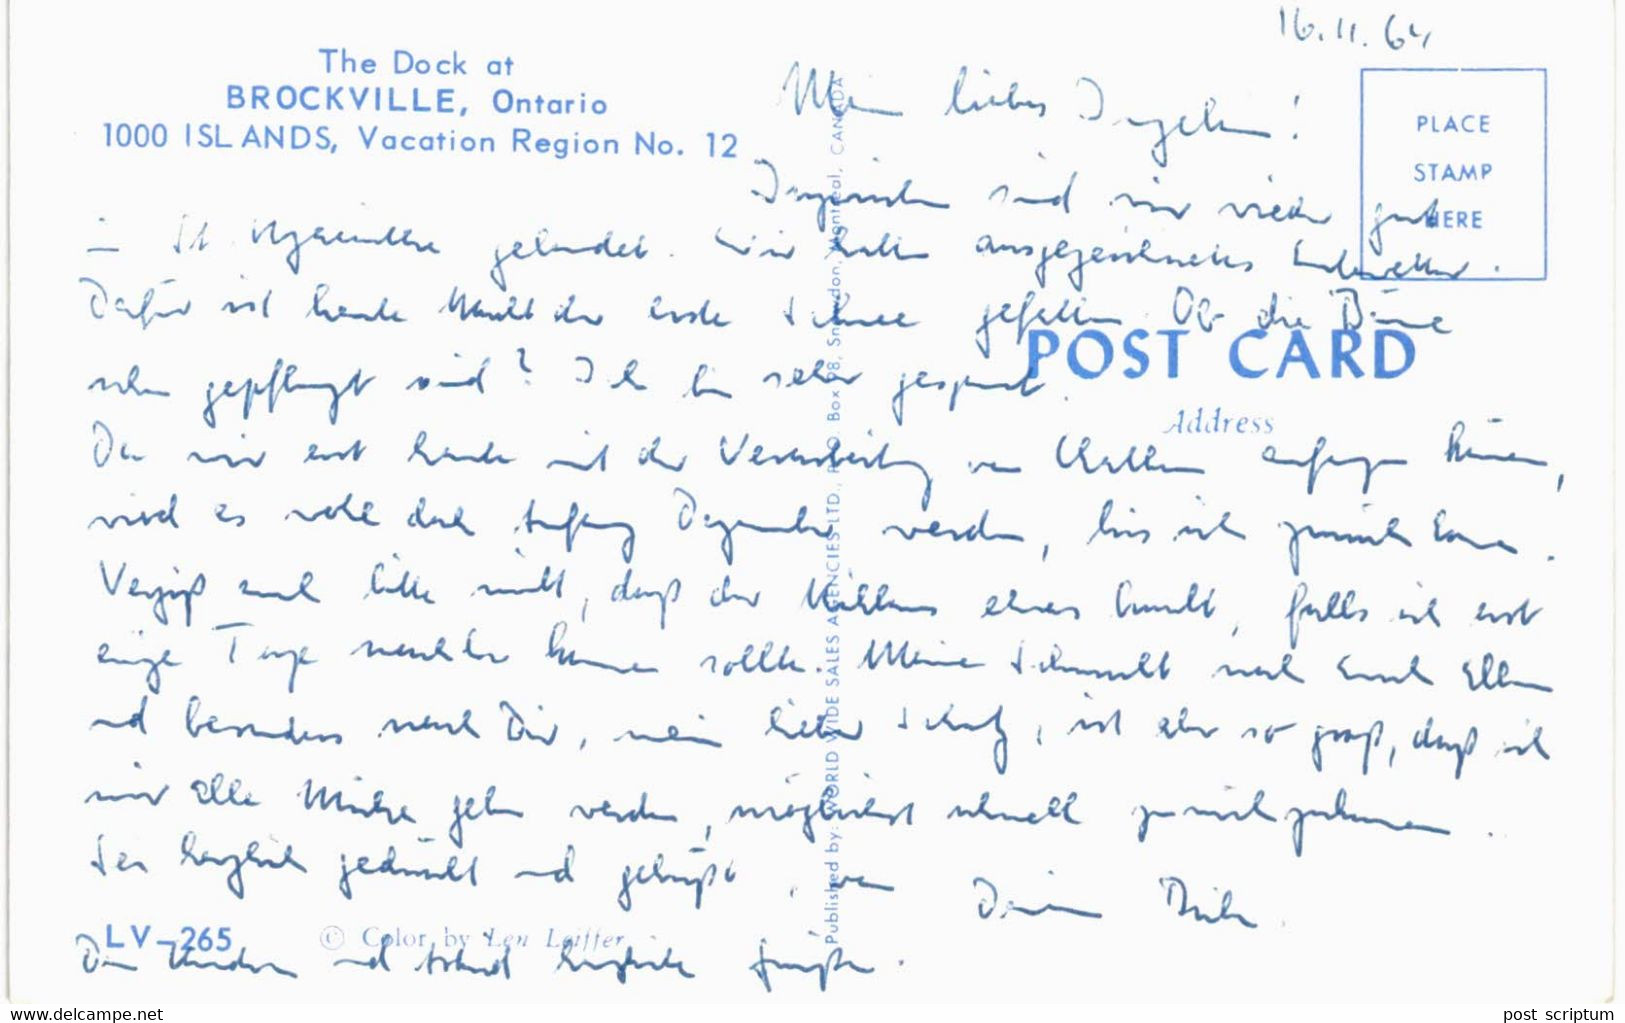 16.11.64
The Dock at
BROCKVILLE, Ontario
1000 ISLANDS, Vacation Region No. 12
PLACE
STAMP
HERE
Mein liebes
Inzwischen sind wir wieder gut
in St. Hyacinthe gelandet. Wir hatten ausgezeichnetes
Dafür ist heute Nacht der erste Schnee gefallen. Ob die Bäume
schon gepflanzt sind? Ich bin sehr gespannt.
POST CARD
Address
Da wir erst heute mit der Verarbeitung von anfangen können,
wird es wohl doch Anfang Dezember werden, bis ich zurück komme.
Vergiß auch bitte nicht, daß der Nikolaus etwas bringt, falls ich erst
einige Tage nachher kommen sollte. Meine Sehnsucht nach Euch Allen
und besonders nach Dir, mein lieber Schatz, ist aber so groß, daß ich
mir alle Mühe geben werde, möglichst schnell zurückzukommen.
Sei herzlich gedrückt und geküßt von Deinem
LV-265
© Color by Len Leiffer
Den Kindern und herzliche Grüße.
Published by: WORLD WIDE SALES AGENCIES LTD., P.O. Box 98, Snowdon, Montreal, CANADA
www.delcampe.net
post scriptum